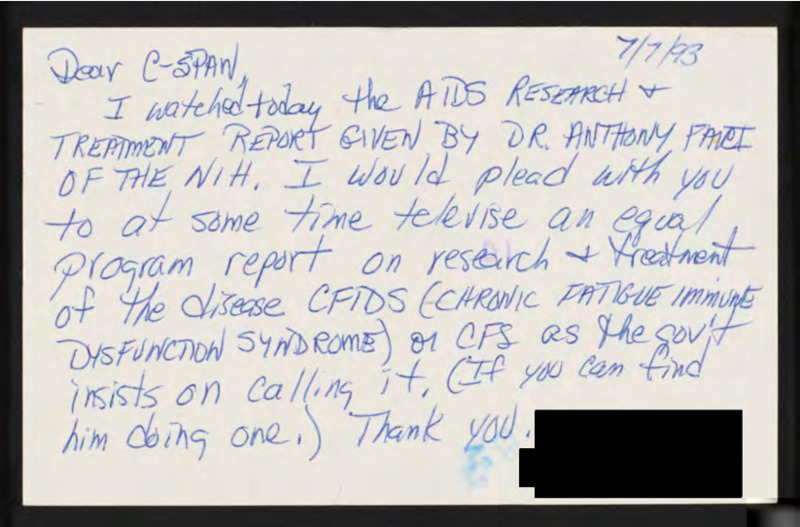 7/7/93
Dear C-SPAN,
I watched today the AIDS RESEARCH +
TREATMENT REPORT GIVEN BY DR. ANTHONY FAICI
OF THE NIH. I would plead with you
to at some time televise an equal
program report on research + treatment
of the disease CFIDS (CHRONIC FATIGUE IMMUNE
DYSFUNCTION SYNDROME) or CFS as the gov't
insists on calling it. (If you can find
him doing one.) Thank you.